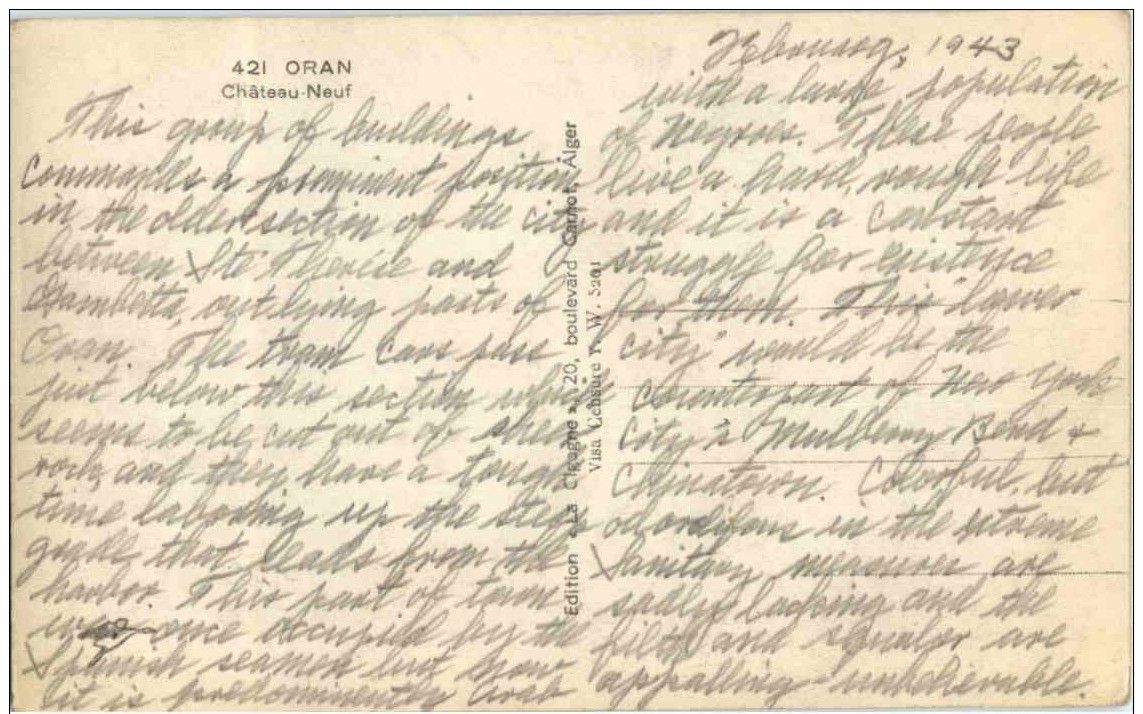 421 ORAN
Château-Neuf
This group of buildings
commands a prominent position
in the older section of the city
between Ste Therése and
Gambetta, outlying parts of
Oran. The tram cars pass
just below this section which
seems to be cut out of sheer
rock, and they have a tough
time laboring up the steep
grade that leads from the
harbor. This part of town
once occupied by the
Spanish seamen but now
it is predominently Arab
Edition « La Cigogne », 20, boulevard Carnot, Alger
Visa Censure N. W. 5201
February, 1943
with a large population
of Negroes. These people
live a hard, rough life
and it is a constant
struggle for existence
for them. This "lower
city" would be the
counterpart of New York
City's Mulberry Bend &
Chinatown. Colorful, but
odorifous in the extreme
Sanitary measures are
sadly lacking and the
filth and squalor are
appalling - unbelievable.